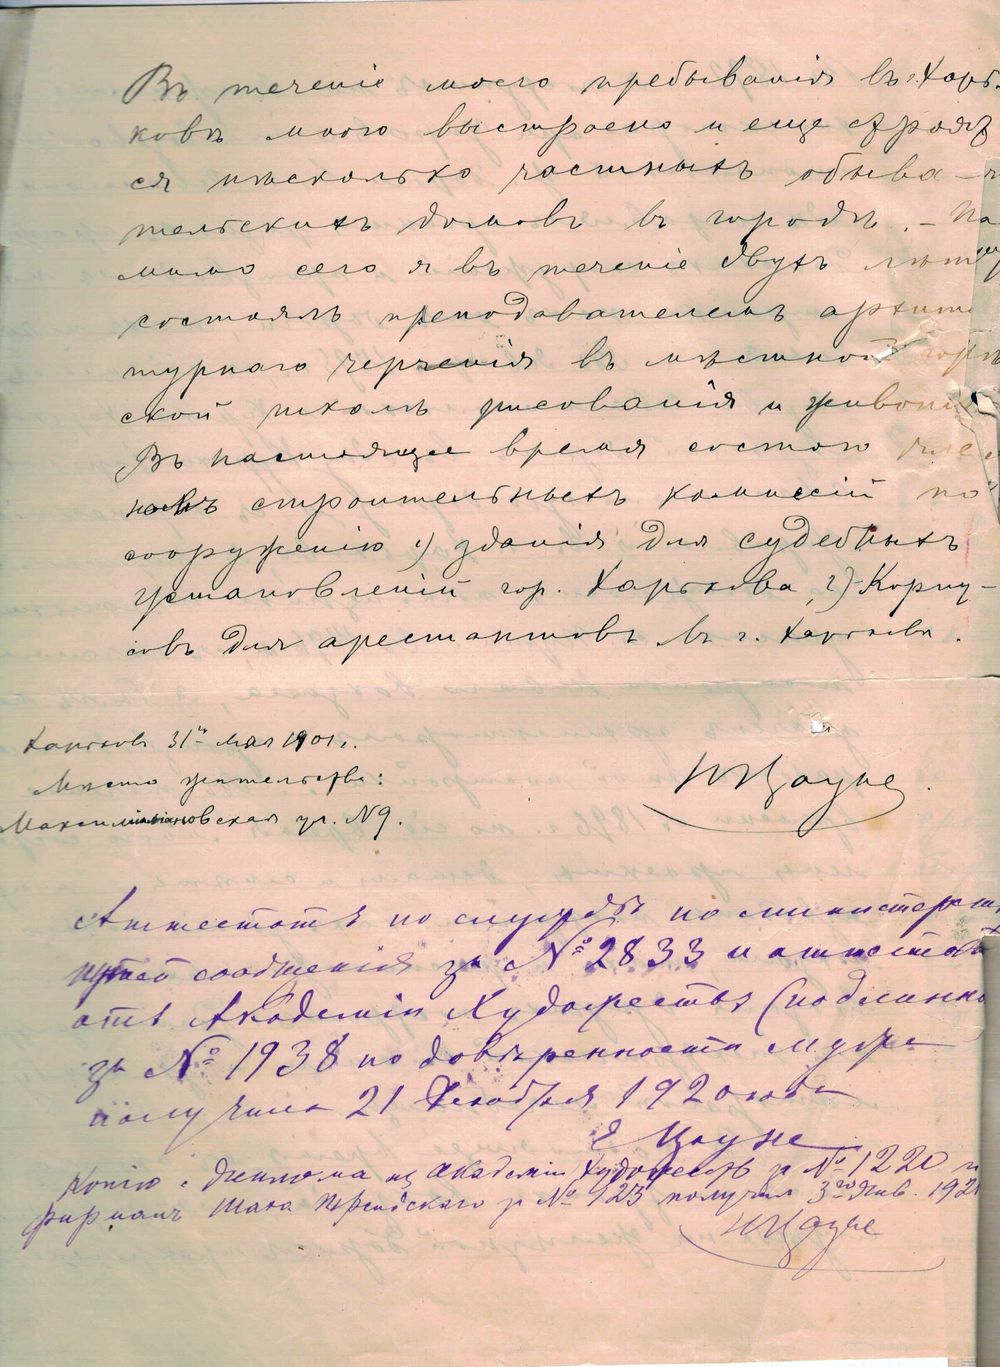 Въ теченіе моего пребыванія въ г. Харь-
ковѣ мною выстроено и еще строят
ся нѣсколько частныхъ обыва-
тельскихъ домовъ въ городѣ. - По
мимо сего я въ теченіе двухъ лѣтъ
состоялъ преподавателемъ архитек
турнаго черченія въ мѣстной город
ской школѣ рисованія и живопис
Въ настоящее время состою чле
номъ строительныхъ комиссій по
сооруженію 1) зданія для судебныхъ
установленій гор. Харькова, 2) Корпу-
совъ для арестантовъ въ г. Харьковѣ.
Харьковъ 31го мая 1901 г.
Мѣсто жительства:
Максимиліановская ул. N 9.
И Цауне.
Аттестатъ по службѣ по министерств
путей сообщенія за № 2833 и аттестат
отъ Академіи Художествъ (подлинно
за № 1938 по довѣренности мужа
получила 21 Декабря 1920 года
Е Цауне
Копію с диплома из Академіи Художествъ за № 1220 и
фирман Шаха Персидскаго за № 123 получил 3го Янв. 1921
И Цауне